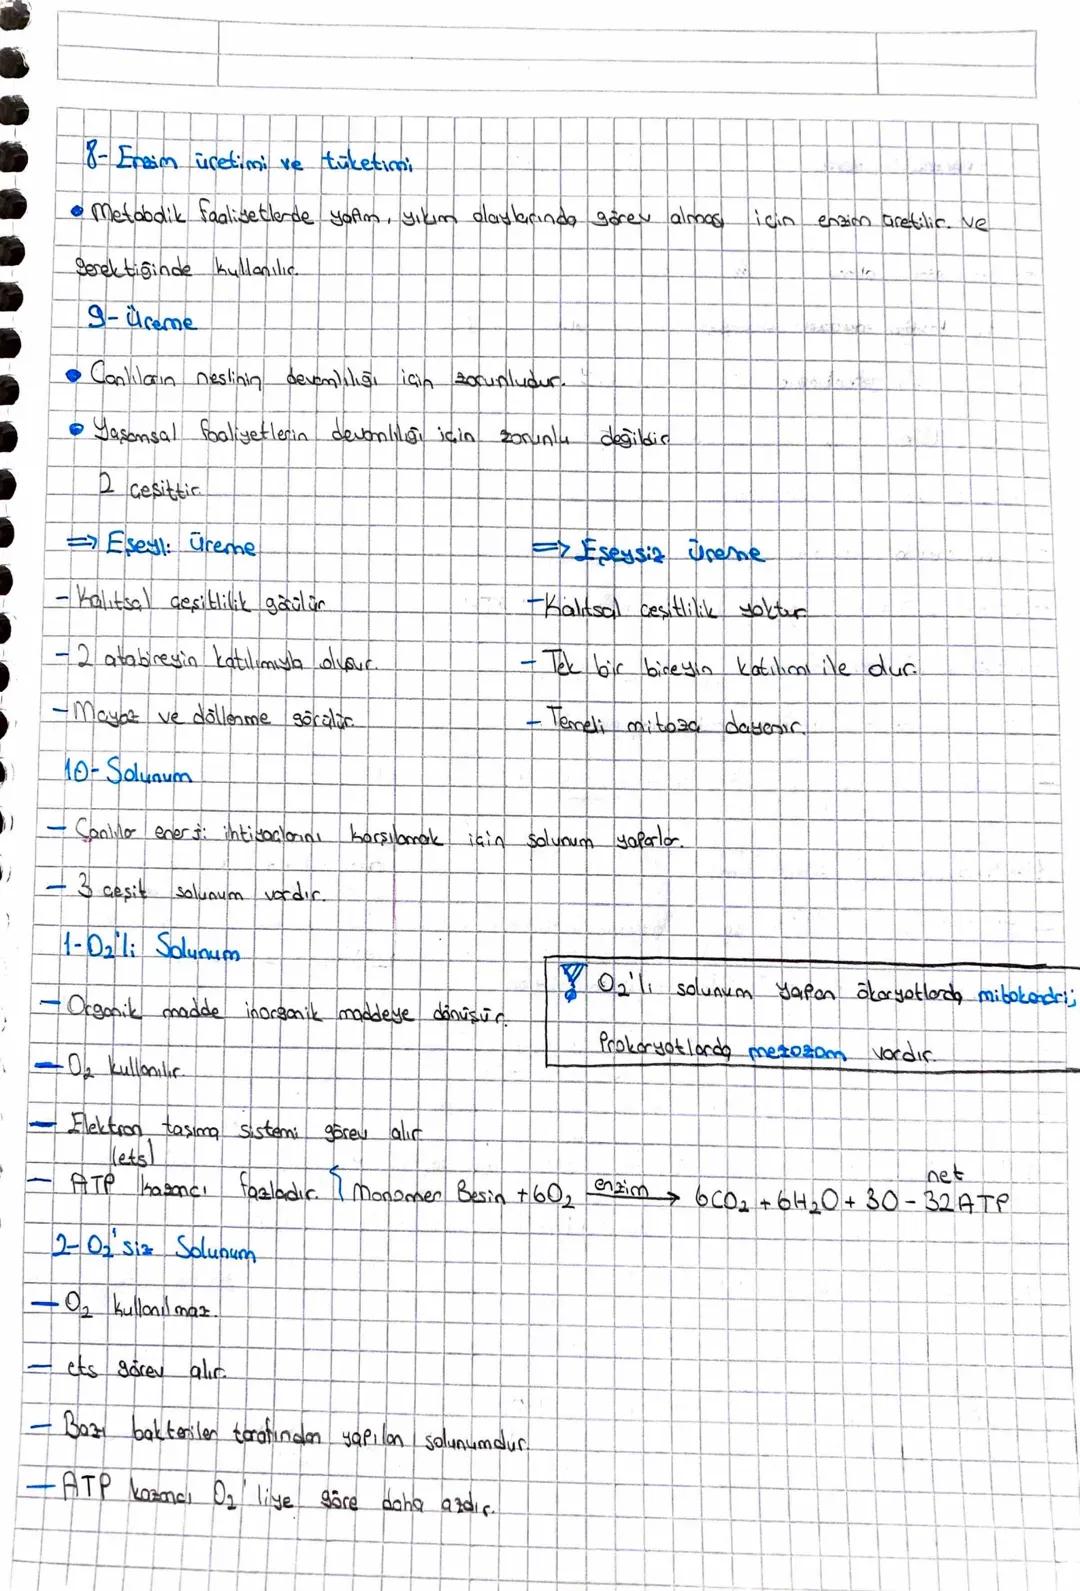 8- Enzim üretimi ve tüketimi
• Metabolik faaliyetlerde yapım, yıkım olaylarında görev alması için enzim üretilir. ve
gerektiğinde kullanılır.
9- Üreme
• Canlıların neslinin devamlılığı için zorunludur.
• Yaşamsal faaliyetlerin devamlılığı için zorunlu değildir
2 çeşittir.
⇒ Eşeyli Üreme
⇒ Eşeysiz Üreme
- Kalıtsal çeşitlilik görülür
- Kalıtsal çeşitlilik yoktur.
- 2 atabireyin katılımıyla oluşur.
- Tek bir bireyin katılımı ile olur.
- Mayoz ve döllenme görülür.
- Temeli mitoza dayanır.
10- Solunum
- Canlılar enerji ihtiyaçlarını karşılamak için solunum yaparlar.
- 3 çeşit solunum vardır.
1- O₂'li Solunum
O₂'li solunum yapan ökaryotlarda mitokondri;
- Organik madde inorganik maddeye dönüşür.
Prokaryotlarda mezozom vardır.
- O₂ kullanılır.
- Elektron taşıma sistemi görev alır
(ets)
- ATP kazancı fazladır. { Monomer Besin + 6O₂ enzim → 6CO₂ + 6H₂O + 30 - 32 ATP
net
2- O₂'siz Solunum
- O₂ kullanılmaz.
- ets görev alır.
- Bazı bakteriler tarafından yapılan solunumdur.
- ATP kazancı O₂'liye göre daha azdır.